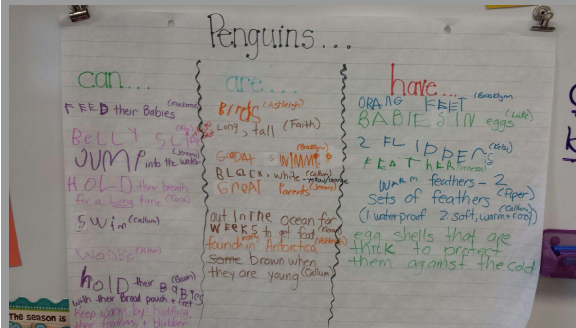 Penguins...
can...
FEED their Babies
BELLY SLIDE
JUMP into the water
HOLD their breath
for a Long time (Tara)
SWIM (Callum)
Waddle
hOLD their BaBIES
with their Brood pouch + feet
Keep warm by huddling
their feathers + blubber
are...
BIrds (Ashleigh)
Long, tall (Faith)
GOOD AT SWIMMING (Brooklyn)
BLACK + white
GREAT Parents (Jeremy)
out In the ocean for
WEEKS to get food
found in Antarctica
some brown when
they are young (Callum)
have...
ORANG FEET (Brooklyn)
BABIES IN eggs (Luke)
2 FLIPPERS
FEATHER
warm feathers - 2
sets of feathers (Piper)
(1 waterproof 2 soft, warm + cozy)
(Callum)
egg shells that are
thick to protect
them against the cold
The season is